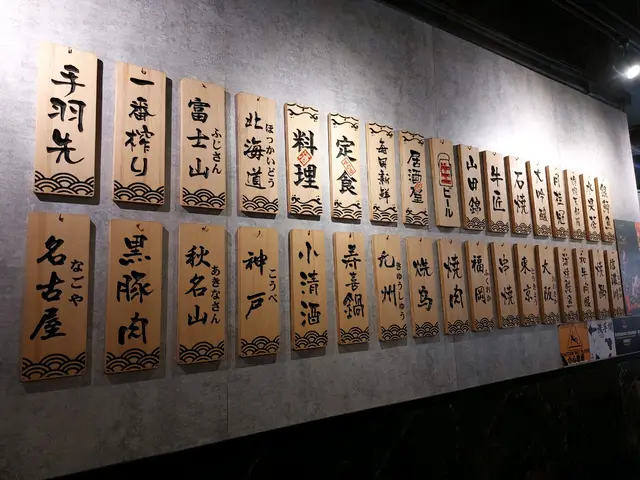 手羽先
一番搾り
富士山 ふじさん
北海道 ほっかいどう
料理
定食
毎日新鮮
居酒屋
生ビール
山田錦
牛匠
石焼
大吟醸
名古屋 なごや
黒豚肉
秋名山 あきなさん
神戸 こうべ
小清酒
寿喜鍋
九州 きゅうしゅう
焼鳥
焼肉
福岡
串焼
東京
大阪